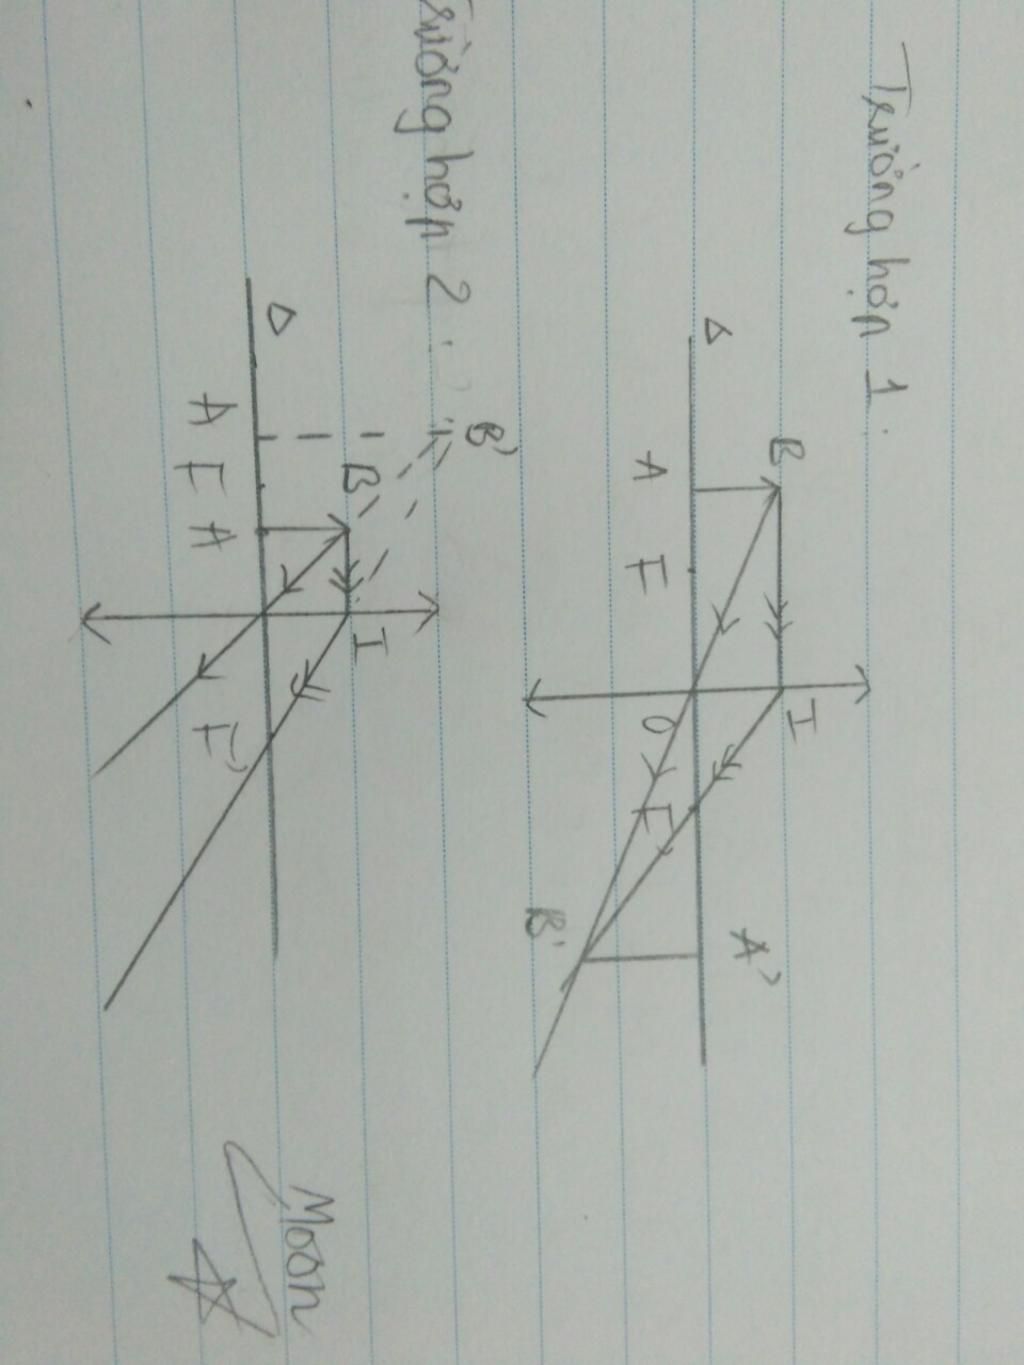 Trường hợp 1.
Δ
B
I
A
F
O
F'
A'
B'
Trường hợp 2:
B'
Δ
B
I
A
F
A
F'
Moon